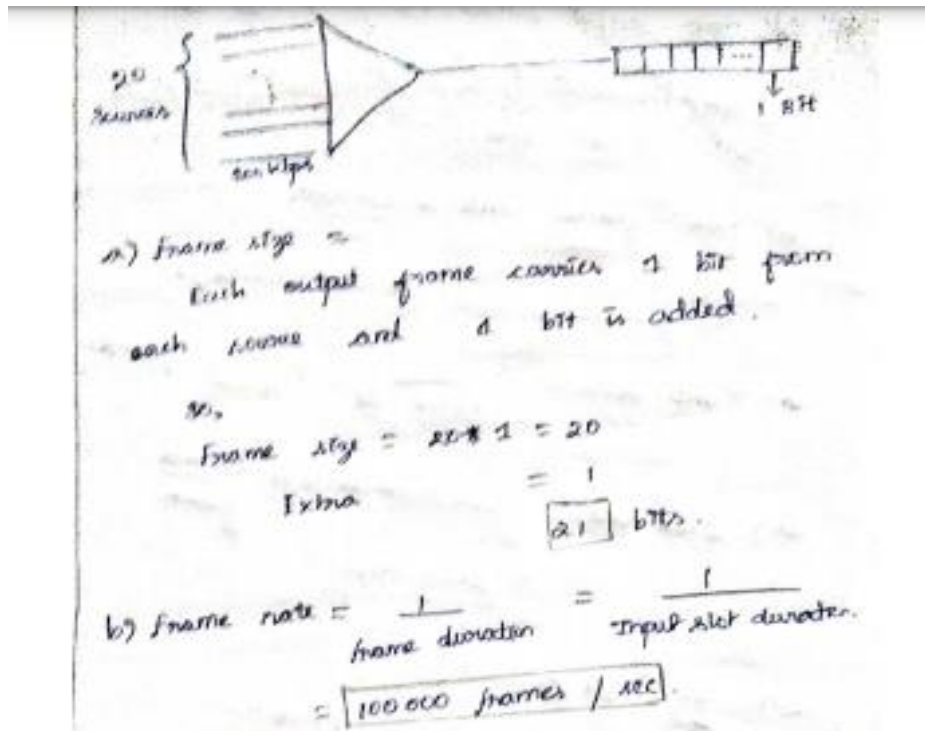 20
1 Bit
a) Frame size =
Each output frame carries 1 bit from
each source and 1 bit is added.
so,
Frame size = 20 * 1 = 20
Extra = 1
21 bits.
b) Frame rate = 1 / frame duration = 1 / Input slot duration.
= 100 000 frames / sec.